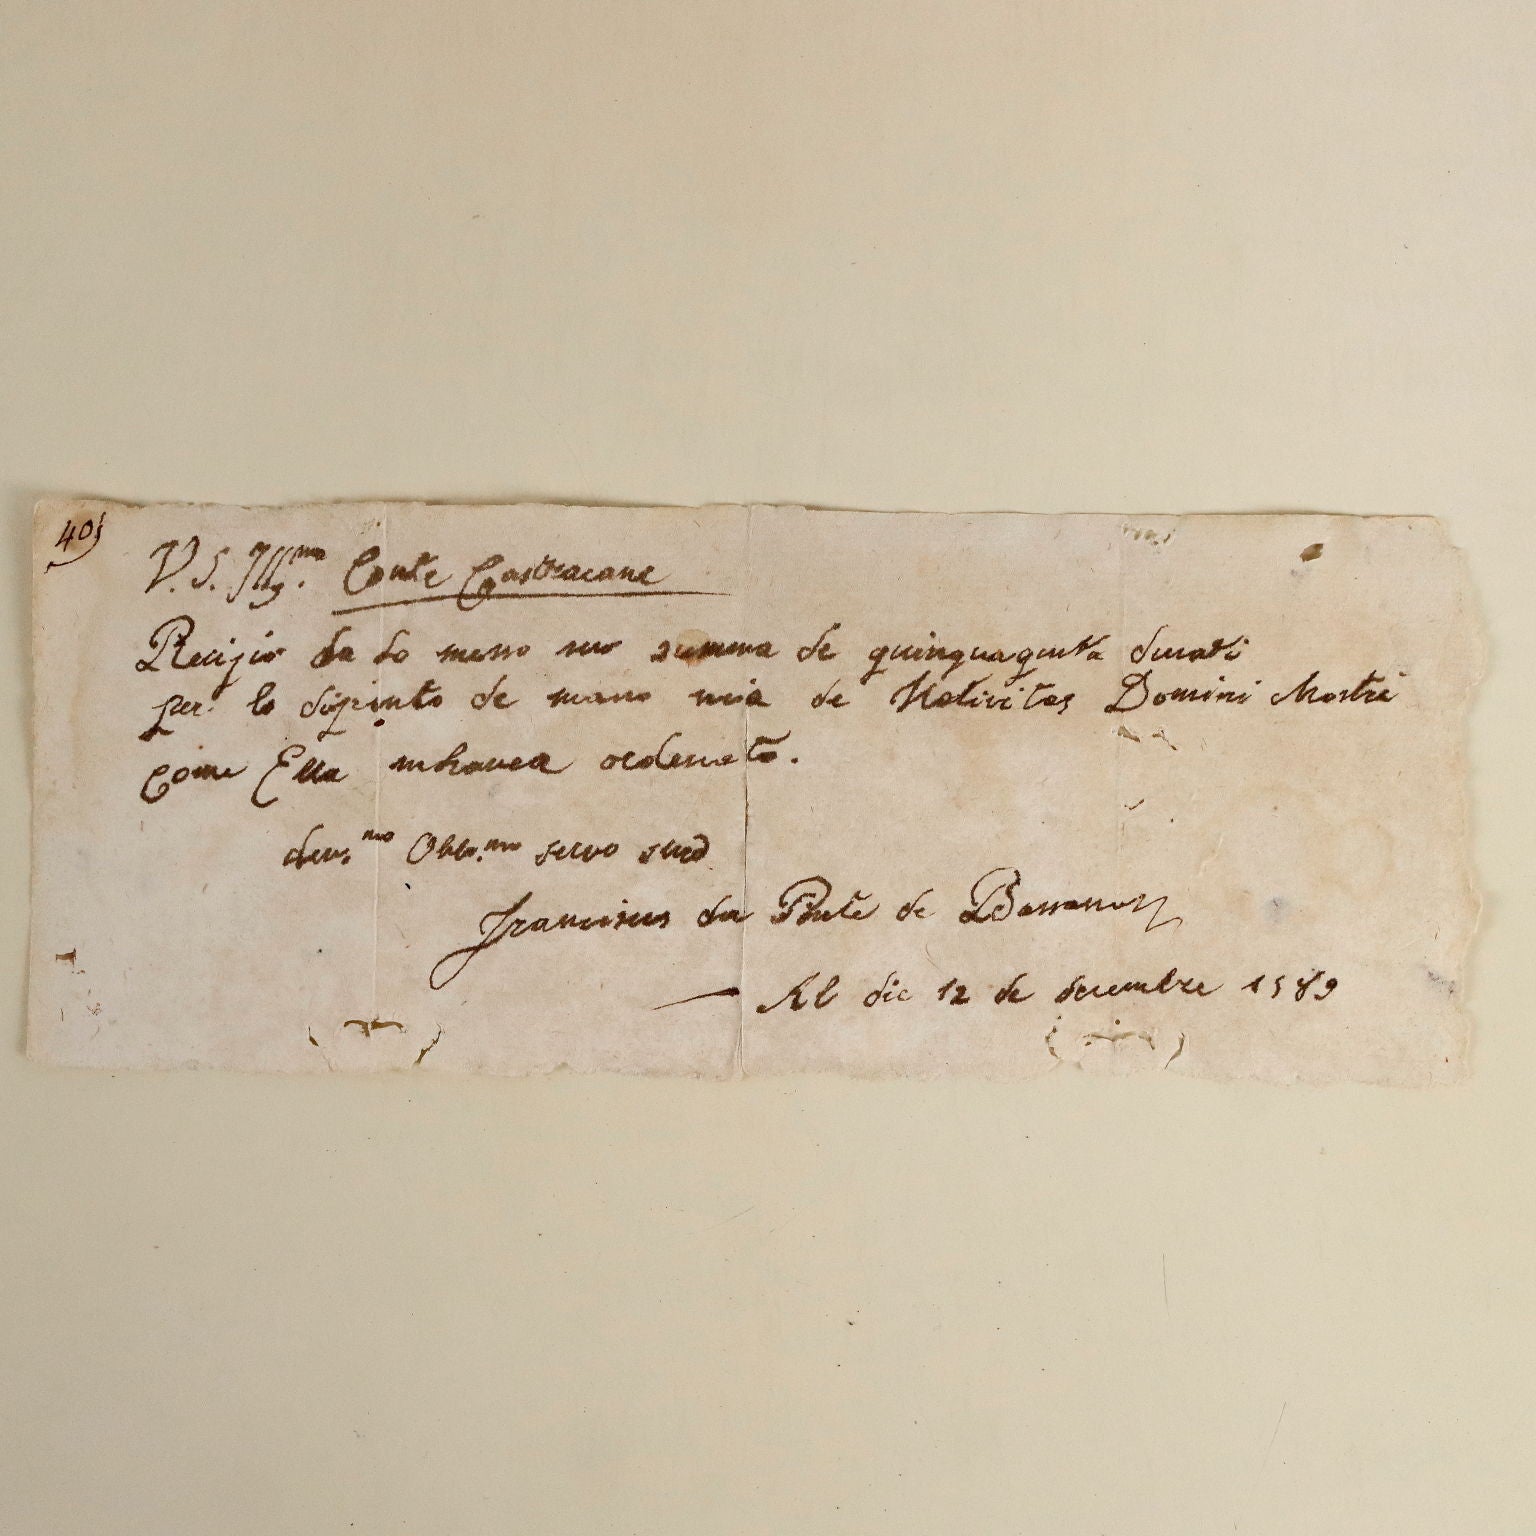 40)
V. S. Ill.mo Conte Castracane
Recipio da lo messo suo summa de quinquaginta ducati
per lo dipinto de mano mia de Nativitas Domini Nostri
come Ella mhavea ordenato.
dev.mo Obb.mo servo suo
Franciscus da Ponte de Bassano
Al die 12 de decembre 1589